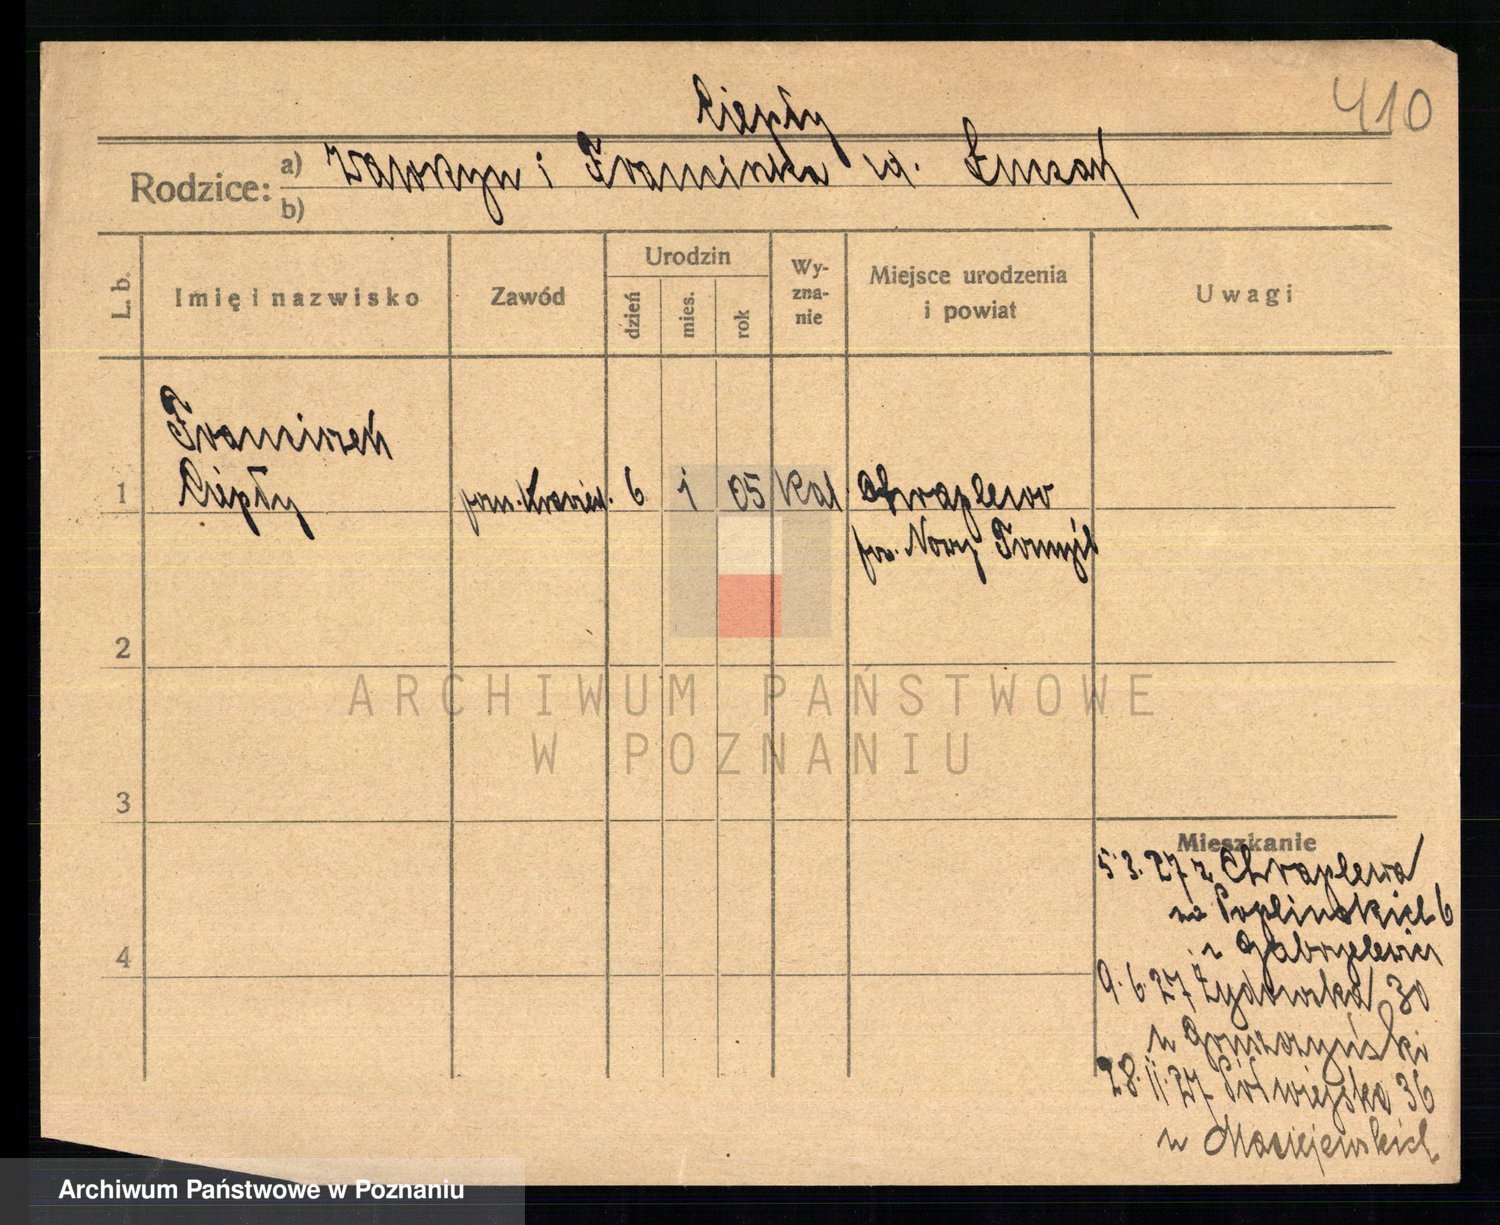 410
Ciepły
Rodzice: a) Wawrzyn i Franciszka ur.
b)
L. b.
Imię i nazwisko
Zawód
Urodzin
dzień
mies.
rok
Wy-
zna-
nie
Miejsce urodzenia
i powiat
Uwagi
Franciszek
1 Ciepły pom. krawiec. 6 1 05 Kat. Chraplewo
pow. Nowy Tomyśl
2
3
4
ARCHIWUM PAŃSTWOWE
W POZNANIU
Mieszkanie
5.3.27 z Chraplewa
na Poplińskich 6
u Gabryelewicz
9.6.27 Żydowska 30
u Gruszczyński
28.11.27 Półwiejska 36
u Maciejewskich
Archiwum Państwowe w Poznaniu